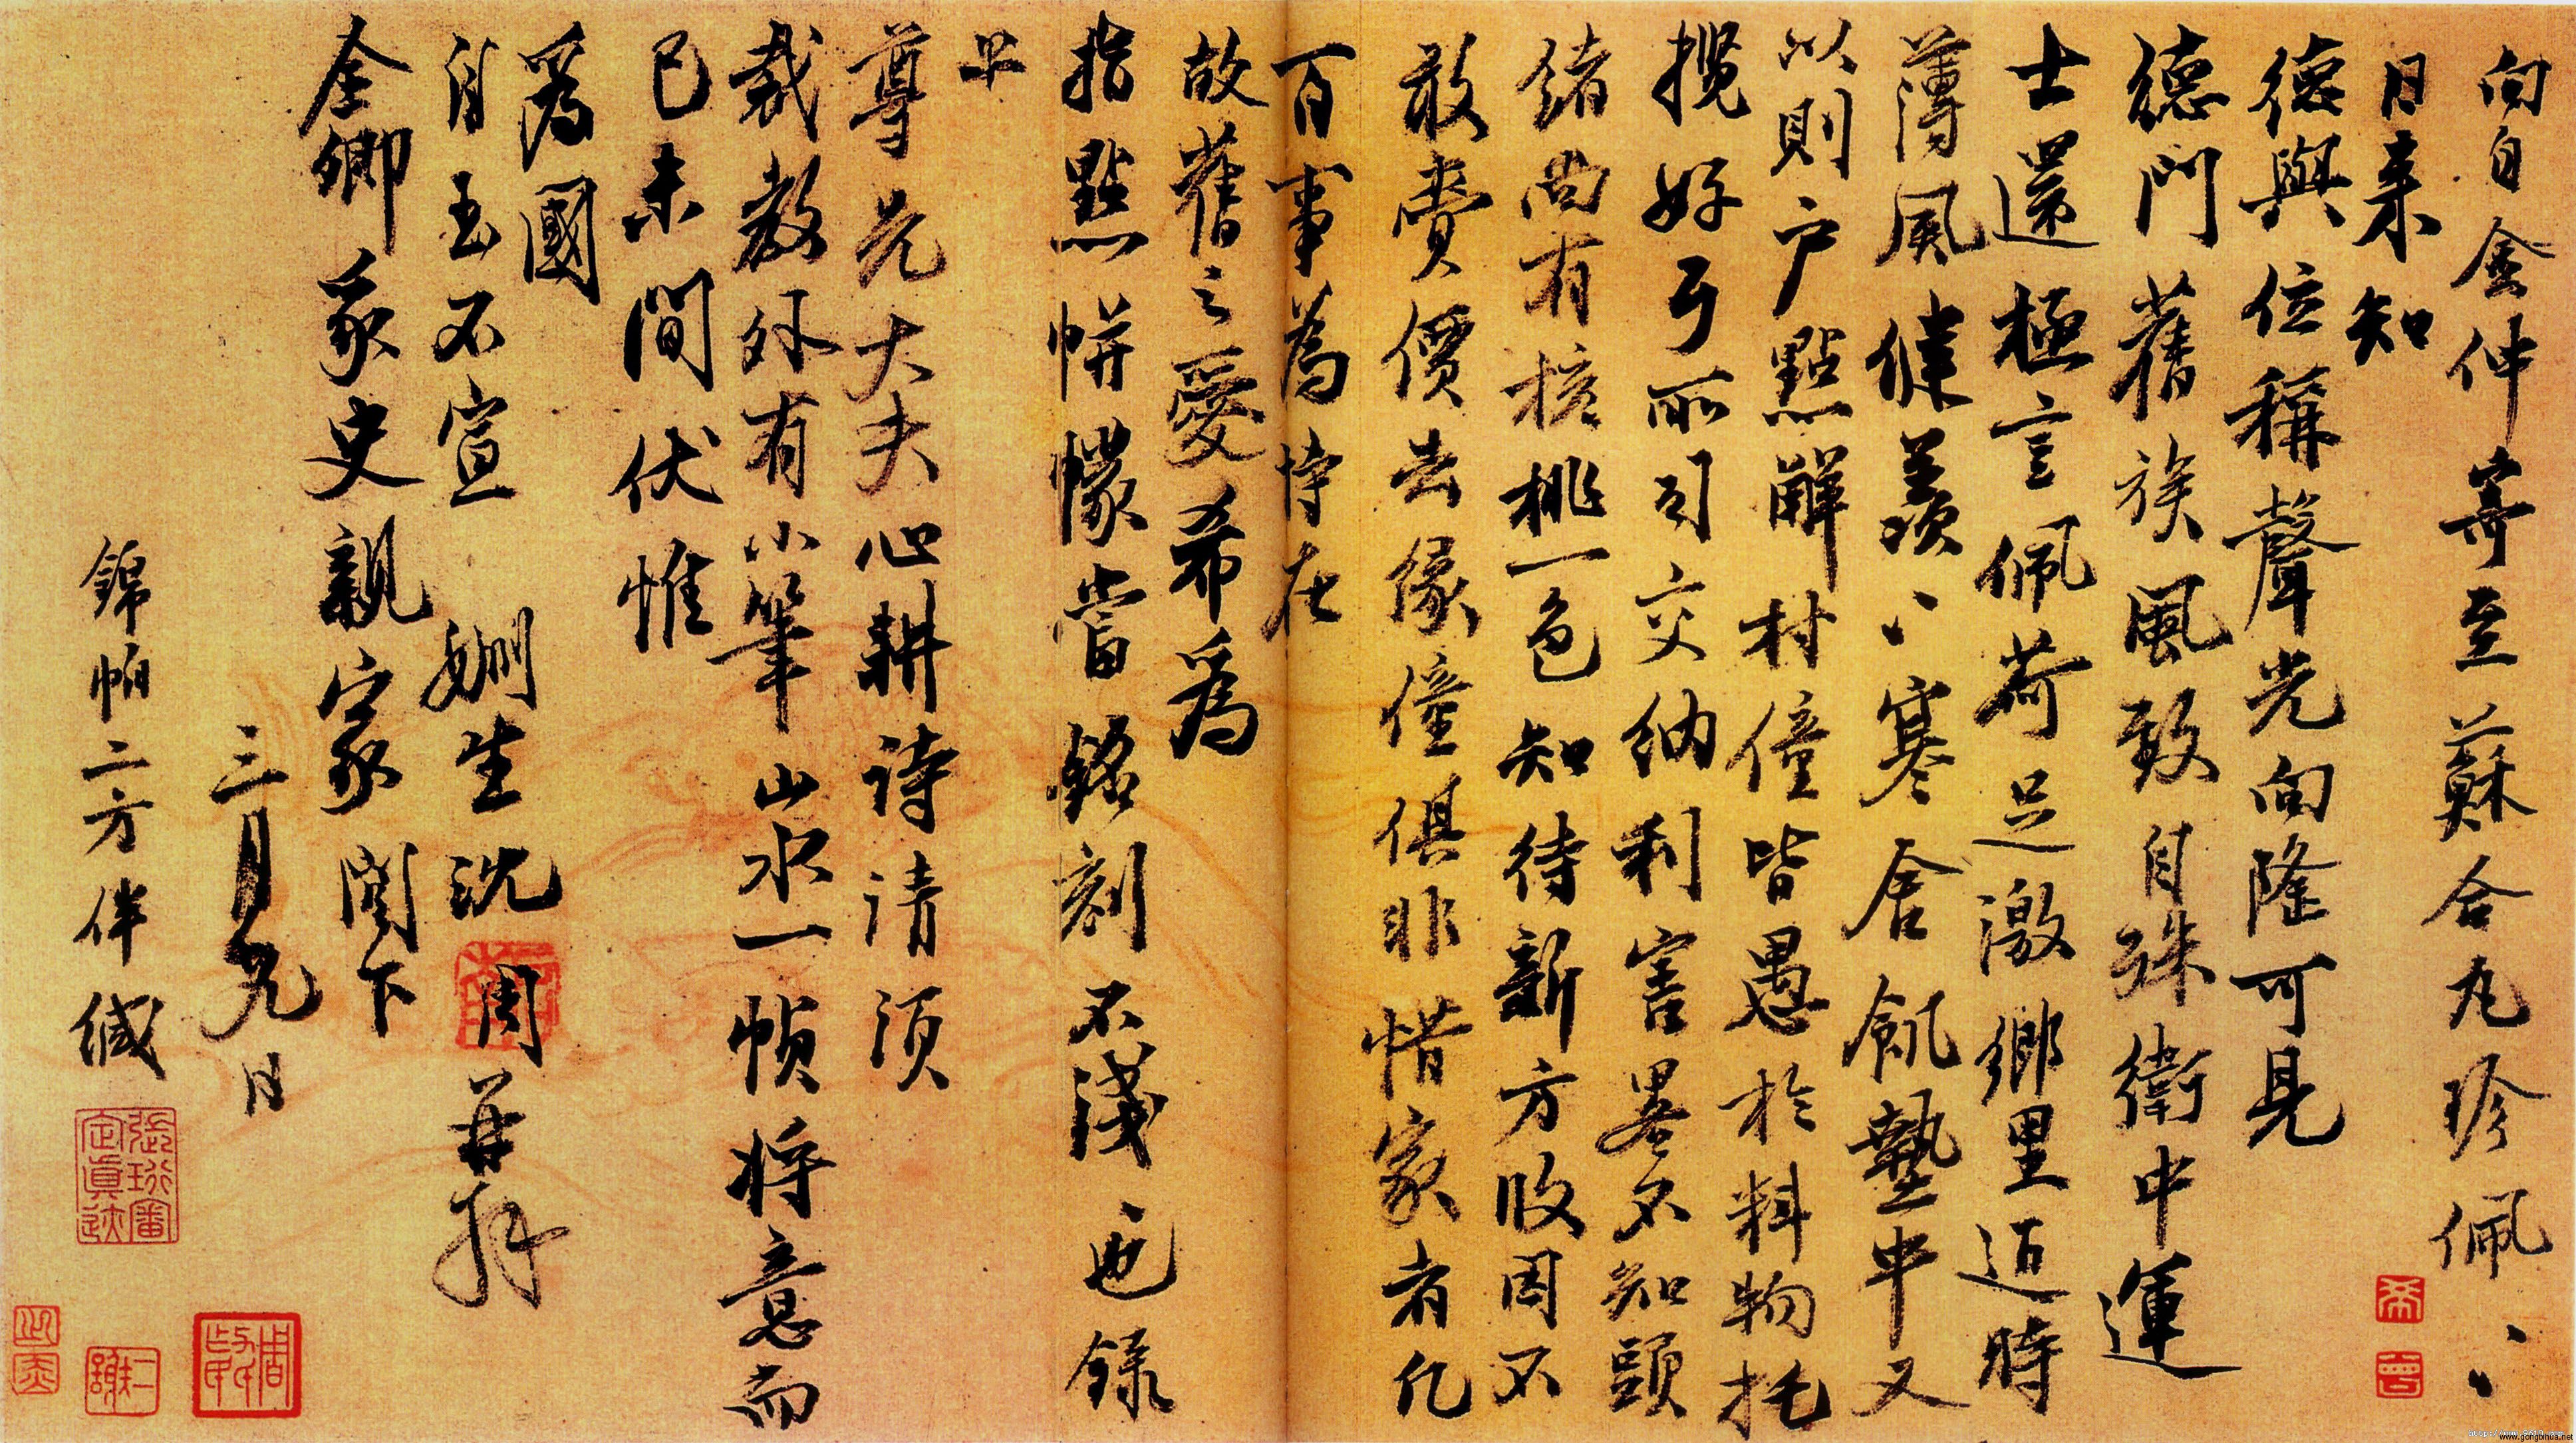 向自金仲寄至蘇合丸珍佩〻
日來知
德與位稱聲光向隆可見
德門舊族風致自殊衛中運
士還極言佩荷足激鄉里迺時
薄風健羨〻寒舍飢蟄中又
以則戶點解村僮皆愚於料物托
攬好了所司交納利害畧不知頭
緒尚有核桃一色知待新方收因不
敢賣價去緣僮俱非惜家者凡
百事為恃在
故舊之愛希爲
指點帡幪當銘刻不淺也錄
上
尊先大夫心耕詩請須
裁教外有小筆山水一幀將意而
已未間伏惟
爲國
自玉不宣 姻生沈周再拜
奎卿彖史親家閣下
三月九日
錦帕二方伴緘
張珩審定真迹
周啟
http://www.9610.com
www.gongbihua.net